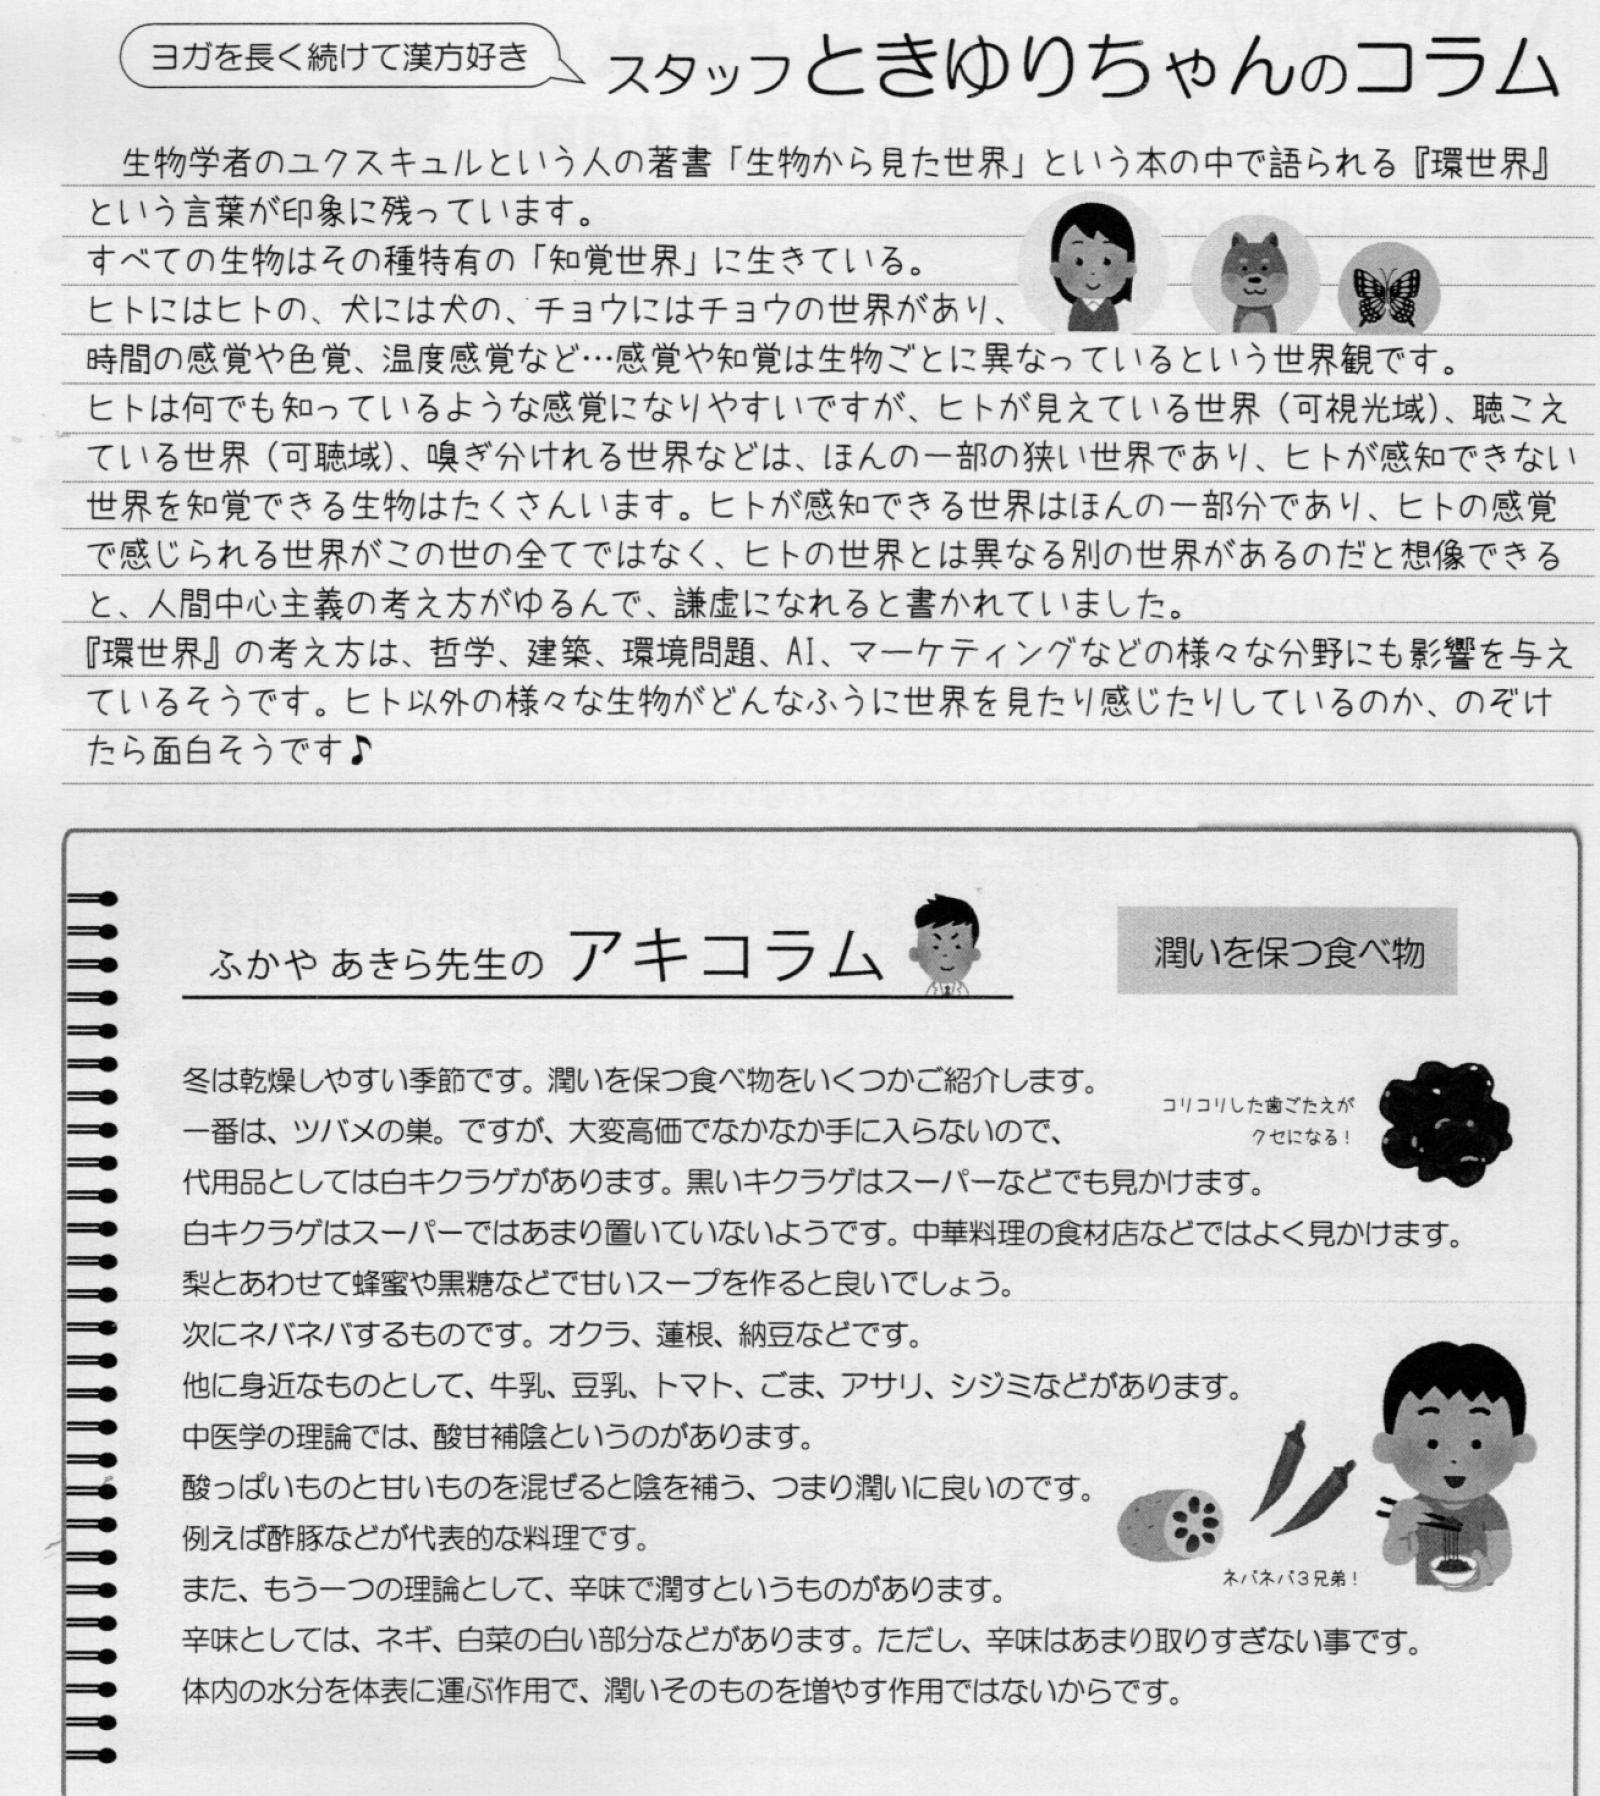 ヨガを長く続けて漢方好き
スタッフときゆりちゃんのコラム
生物学者のユクスキュルという人の著書「生物から見た世界」という本の中で語られる『環世界』
という言葉が印象に残っています。
すべての生物はその種特有の「知覚世界」に生きている。
ヒトにはヒトの、犬には犬の、チョウにはチョウの世界があり、
時間の感覚や色覚、温度感覚など…感覚や知覚は生物ごとに異なっているという世界観です。
ヒトは何でも知っているような感覚になりやすいですが、ヒトが見えている世界（可視光域）、聴こえ
ている世界（可聴域）、嗅ぎ分けれる世界などは、ほんの一部の狭い世界であり、ヒトが感知できない
世界を知覚できる生物はたくさんいます。ヒトが感知できる世界はほんの一部分であり、ヒトの感覚
で感じられる世界がこの世の全てではなく、ヒトの世界とは異なる別の世界があるのだと想像できる
と、人間中心主義の考え方がゆるんで、謙虚になれると書かれていました。
『環世界』の考え方は、哲学、建築、環境問題、AI、マーケティングなどの様々な分野にも影響を与え
ているそうです。ヒト以外の様々な生物がどんなふうに世界を見たり感じたりしているのか、のぞけ
たら面白そうです♪
ふかや あきら先生の アキコラム
潤いを保つ食べ物
冬は乾燥しやすい季節です。潤いを保つ食べ物をいくつかご紹介します。
一番は、ツバメの巣。ですが、大変高価でなかなか手に入らないので、
コリコリした歯ごたえが
クセになる！
代用品としては白キクラゲがあります。黒いキクラゲはスーパーなどでも見かけます。
白キクラゲはスーパーではあまり置いていないようです。中華料理の食材店などではよく見かけます。
梨とあわせて蜂蜜や黒糖などで甘いスープを作ると良いでしょう。
次にネバネバするものです。オクラ、蓮根、納豆などです。
他に身近なものとして、牛乳、豆乳、トマト、ごま、アサリ、シジミなどがあります。
中医学の理論では、酸甘補陰というのがあります。
酸っぱいものと甘いものを混ぜると陰を補う、つまり潤いに良いのです。
例えば酢豚などが代表的な料理です。
ネバネバ3兄弟！
また、もう一つの理論として、辛味で潤すというものがあります。
辛味としては、ネギ、白菜の白い部分などがあります。ただし、辛味はあまり取りすぎない事です。
体内の水分を体表に運ぶ作用で、潤いそのものを増やす作用ではないからです。